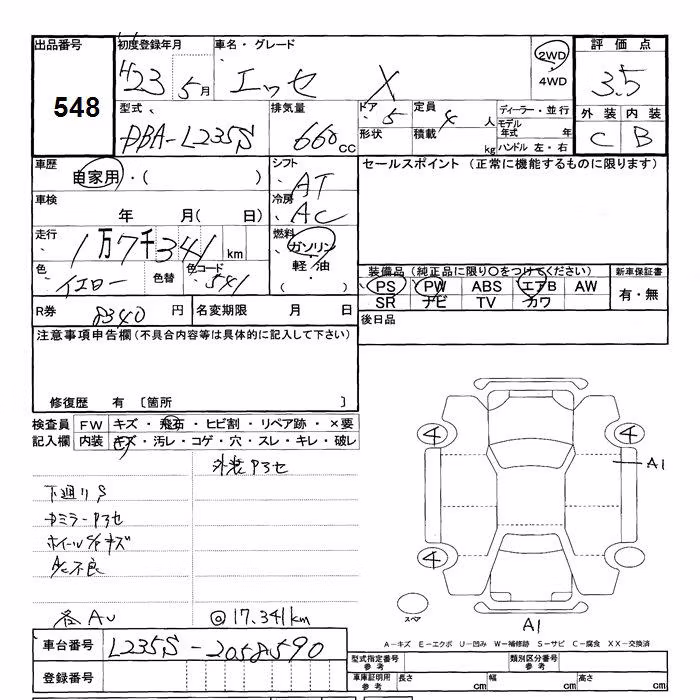 出品番号
548
初度登録年月
H23 5月
車名・グレード
エッセ X
2WD
4WD
評価点
3.5
外装 内装
C B
型式
DBA-L235S
排気量
660cc
ドア 5
形状
定員 4人
積載 kg
ディーラー・並行
モデル年式 年
ハンドル 左・右
車歴
自家用・( )
シフト
AT
セールスポイント (正常に機能するものに限ります)
車検
年 月( 日)
冷房
AC
走行
1万7千341km
燃料
ガソリン・
軽油
・( )
色
イエロー
色替
色コード
541
装備品(純正品に限り○をつけてください)
PS PW ABS エアB AW
SR ナビ TV カワ
新車保証書
有・無
R券
8340円
名変期限 月 日
後日品
注意事項申告欄(不具合内容等は具体的に記入して下さい)
修復歴 有 〔箇所 〕
検査員記入欄
FW キズ・飛石・ヒビ割・リペア跡・×要
内装 キズ・汚レ・コゲ・穴・スレ・キレ・破レ
外装アセ
下廻りS
ドミラーアセ
ホイールS/Pキズ
A/C不良
各AU
◎17.341km
4
4
A1
スペア
A1
A-キズ E-エクボ U-凹み W-補修跡 S-サビ C-腐食 XX-交換済
車台番号
L235S-2058590
登録番号
型式指定番号 参考
類別区分番号 参考
車庫証明用 参考
長さ cm
幅 cm
高さ cm